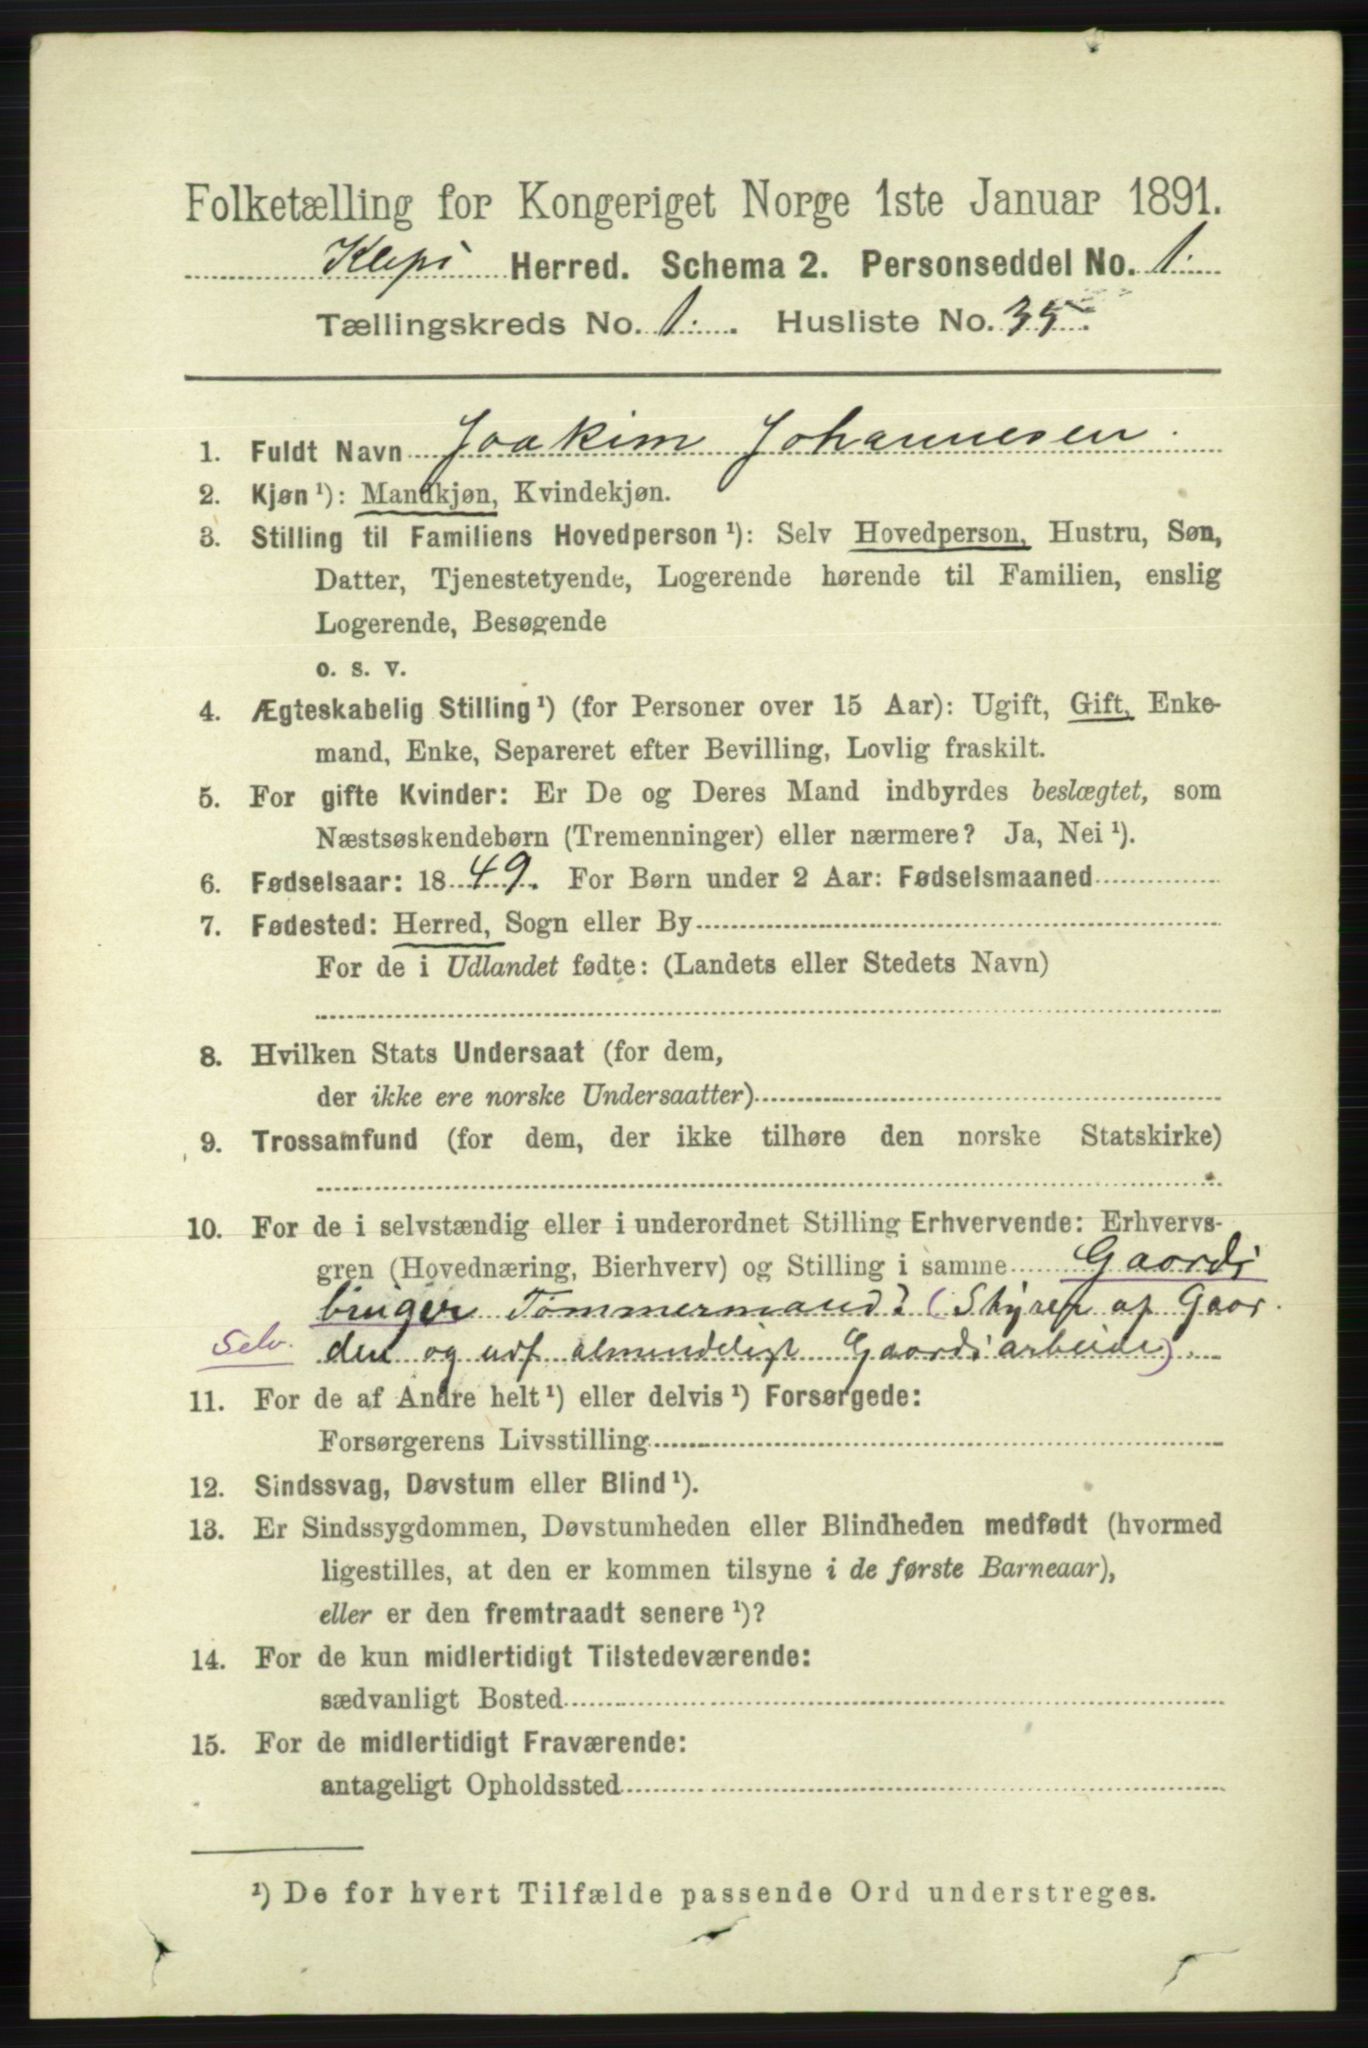 Folketælling for Kongeriget Norge 1ste Januar 1891.
Klepp Herred. Schema 2. Personseddel No. 1.
Tællingskreds No. 1. Husliste No. 35.
1. Fuldt Navn Joakim Johannesen.
2. Kjøn ¹): Mandkjøn, Kvindekjøn.
3. Stilling til Familiens Hovedperson ¹): Selv Hovedperson, Hustru, Søn,
Datter, Tjenestetyende, Logerende hørende til Familien, enslig
Logerende, Besøgende
o. s. v.
4. Ægteskabelig Stilling ¹) (for Personer over 15 Aar): Ugift, Gift, Enke-
mand, Enke, Separeret efter Bevilling, Lovlig fraskilt.
5. For gifte Kvinder: Er De og Deres Mand indbyrdes beslægtet, som
Næstsøskendebørn (Tremenninger) eller nærmere? Ja, Nei ¹).
6. Fødselsaar: 1849. For Børn under 2 Aar: Fødselsmaaned
7. Fødested: Herred, Sogn eller By
For de i Udlandet fødte: (Landets eller Stedets Navn)
8. Hvilken Stats Undersaat (for dem,
der ikke ere norske Undersaatter)
9. Trossamfund (for dem, der ikke tilhøre den norske Statskirke)
10. For de i selvstændig eller i underordnet Stilling Erhvervende: Erhvervs-
gren (Hovednæring, Bierhverv) og Stilling i samme Gaards
bruger Tømmermand? (Styrer af Gaar
Selv. den og udf almindeligt Gaardsarbeide).
11. For de af Andre helt ¹) eller delvis ¹) Forsørgede:
Forsørgerens Livsstilling
12. Sindssvag, Døvstum eller Blind ¹).
13. Er Sindssygdommen, Døvstumheden eller Blindheden medfødt (hvormed
ligestilles, at den er kommen tilsyne i de første Barneaar),
eller er den fremtraadt senere ¹)?
14. For de kun midlertidigt Tilstedeværende:
sædvanligt Bosted
15. For de midlertidigt Fraværende:
antageligt Opholdssted
¹) De for hvert Tilfælde passende Ord understreges.